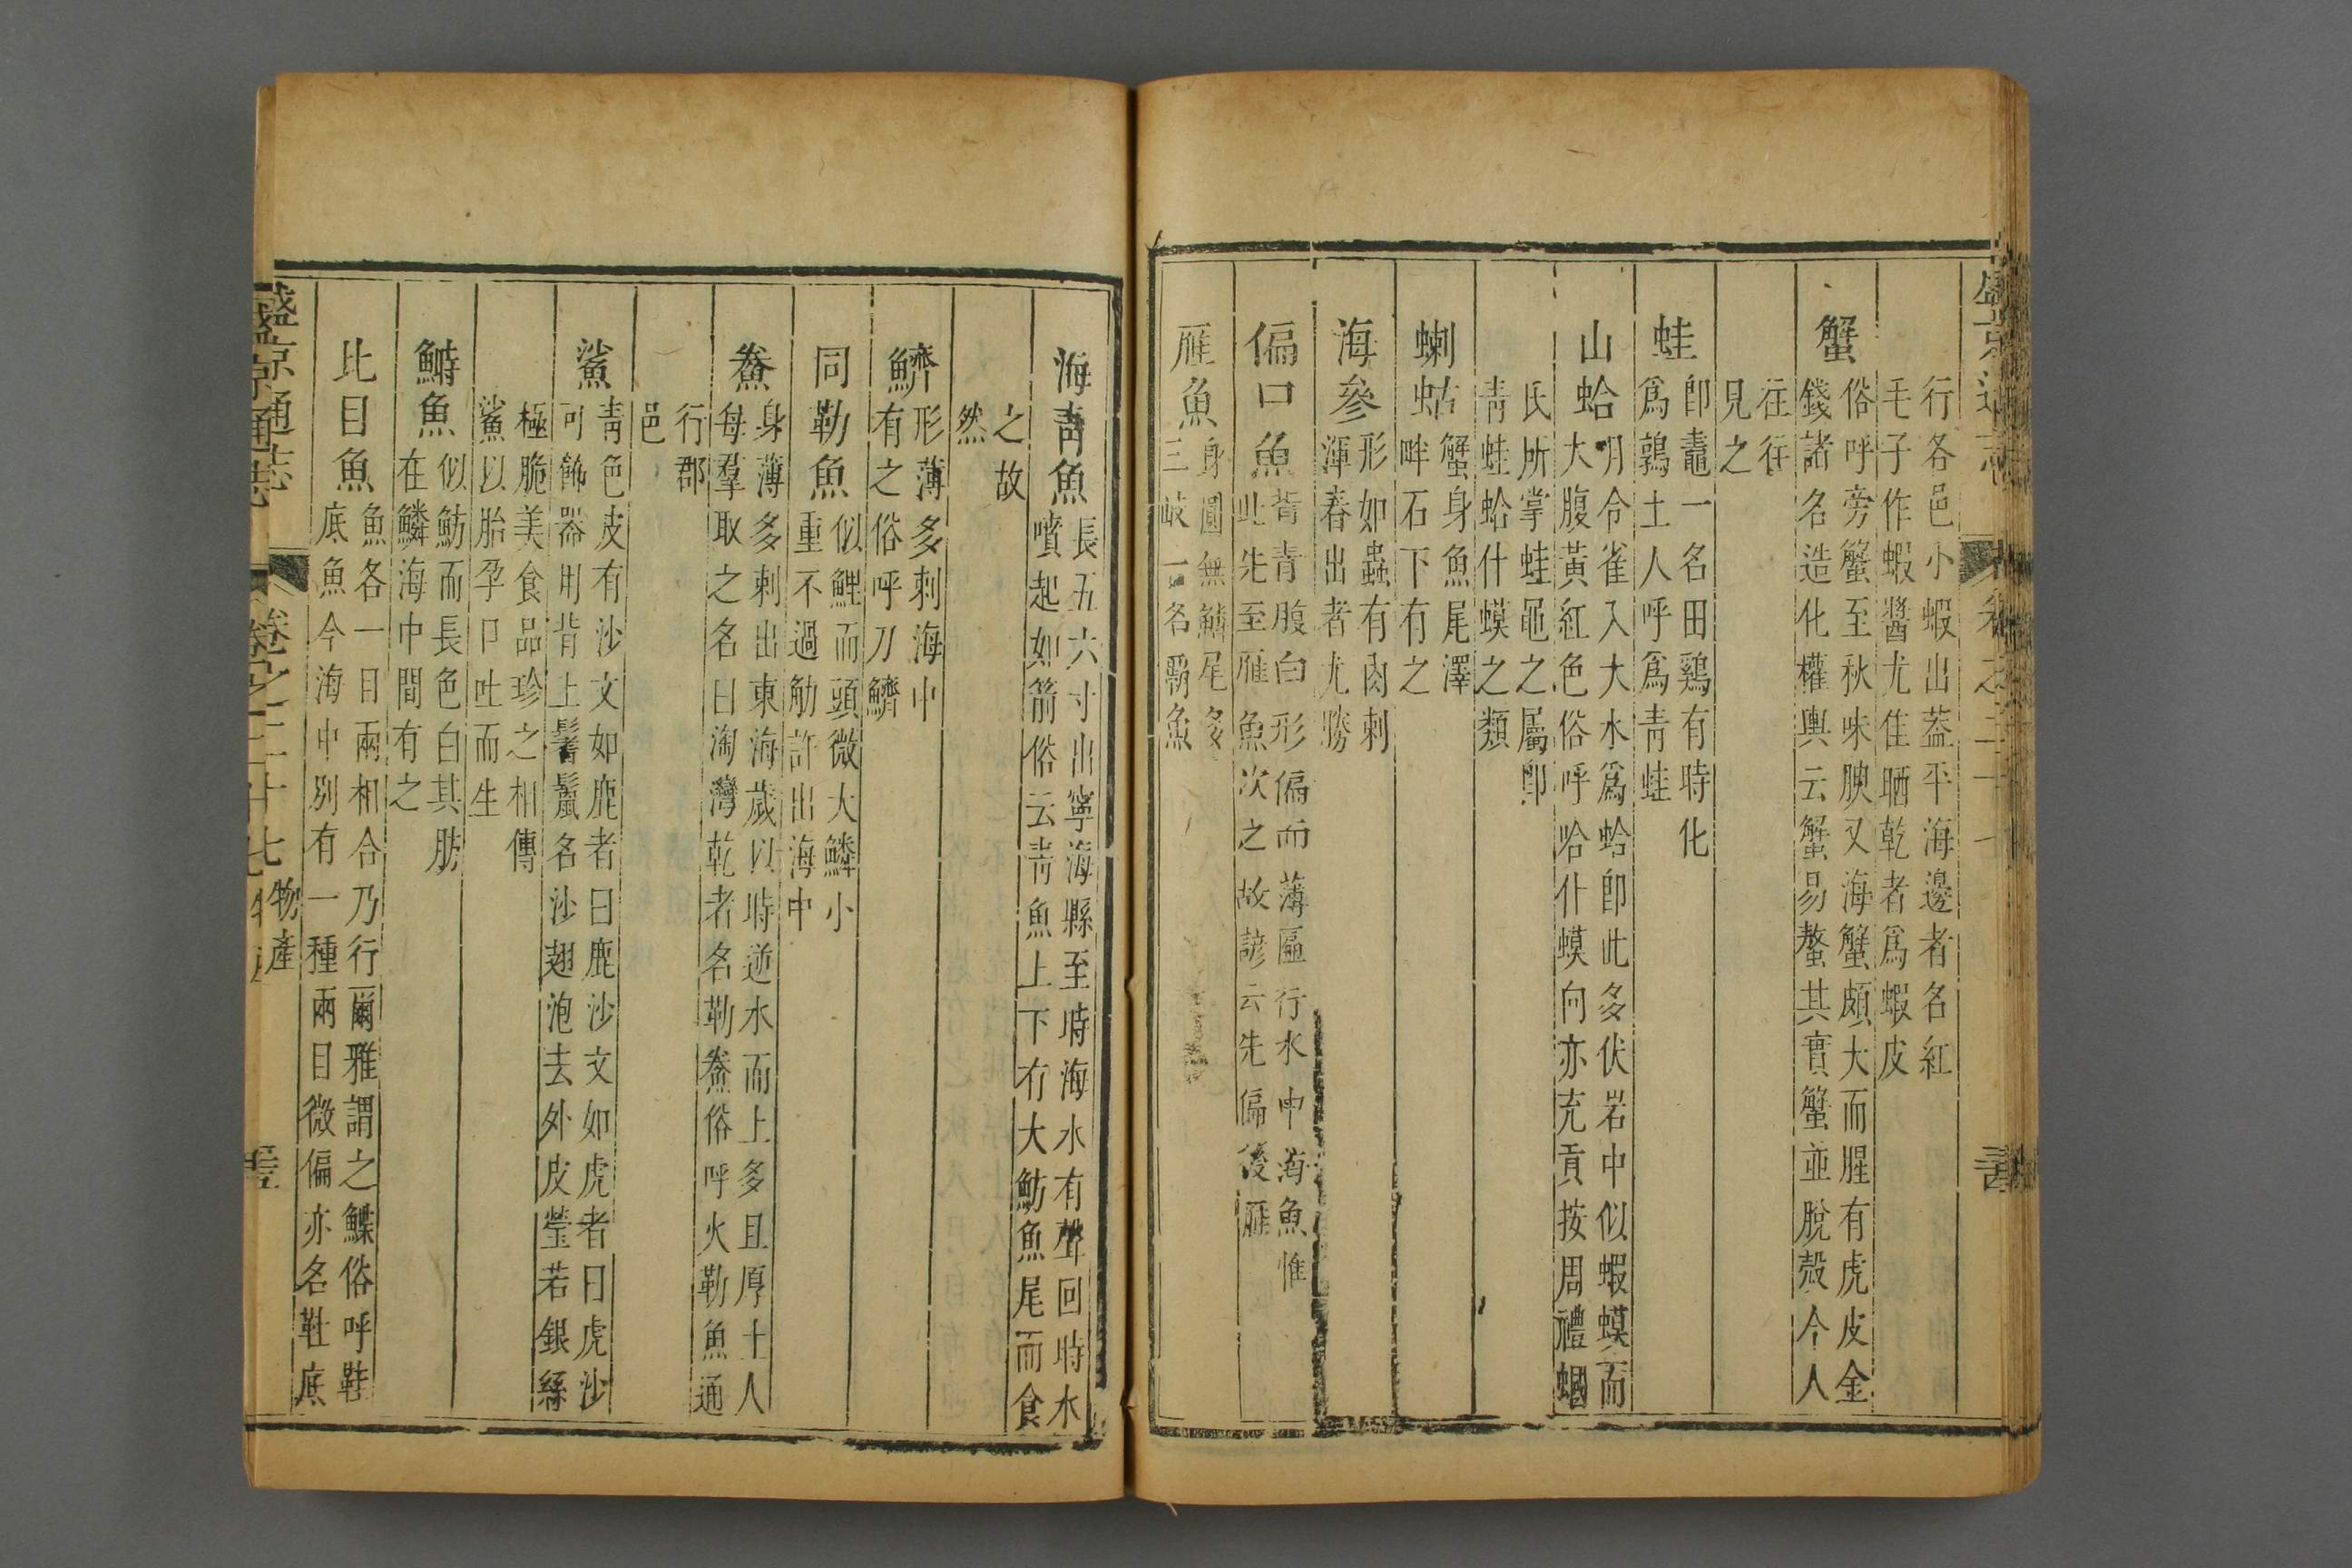 盛京通志 卷之二十七
行各邑小蝦出葢平海邊者名紅
毛子作蝦醬尤佳晒乾者爲蝦皮
蟹
俗呼旁蟹至秋味腴又海蟹頗大而腥有虎皮金
錢諸名造化權輿云蟹易螯其實蟹並脫殼今人
往往
見之
蛙
卽鼃一名田鷄有時化
爲鶉土人呼爲青蛙
山蛤
月令雀入大水爲蛤卽此多伏岩中似蝦蟆而
大腹黃紅色俗呼哈什蟆向亦充貢按周禮蟈
氏所掌蛙黽之屬卽
青蛙蛤什蟆之類
蝲蛄
蟹身魚尾澤
畔石下有之
海參
形如蟲有肉刺
渾春出者尤勝
偏口魚
背青腹白形偏而薄匾行水中海魚惟
此先至雁魚次之故諺云先偏後雁
雁魚
身圓無鱗尾多
三岐一名覇魚
海青魚
長五六寸出寧海縣至時海水有聲回時水
噴起如箭俗云青魚上下有大魴魚尾而食
之故
然
鱭
形薄多刺海中
有之俗呼刀鱭
同勒魚
似鯉而頭微大鱗小
重不過觔許出海中
鮝
身薄多刺出東海歲以時逆水而上多且厚土人
每羣取之名曰淘灣乾者名勒鮝俗呼火勒魚通
行郡
邑
鯊
青色皮有沙文如鹿者曰鹿沙文如虎者曰虎沙
可飾器用背上鬐鬣名沙翅泡去外皮瑩若銀絲
極脆美食品珍之相傳
鯊以胎孕卩吐而生
鰣魚
似魴而長色白其肪
在鱗海中間有之
比目魚
魚各一目兩相合乃行爾雅謂之鰈俗呼鞋
底魚今海中別有一種兩目微偏亦名鞋底
盛京通志 卷之二十七 物產 三五